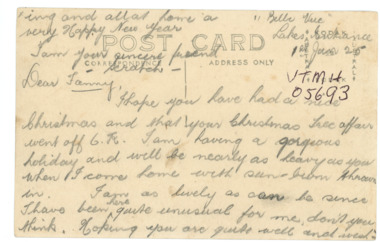 "Belle Vue
Lakes Entrance
1st Jan 25
Dear Fanny,
I hope you have had a nice
Christmas and that your Christmas Tree affair
went off O.K. I am having a gorgeous
holiday and will be nearly as heavy as you
when I come home with sun-burn thrown
in. I am as lively as can be since
I have been here quite unusual for me, don't you
think. Hoping you are quite well and wish-
ing and all at home a
very Happy New Year
I am your sincere friend
POST CARD
CORRESPONDENCE
ADDRESS ONLY
V.T.M.H.
05693